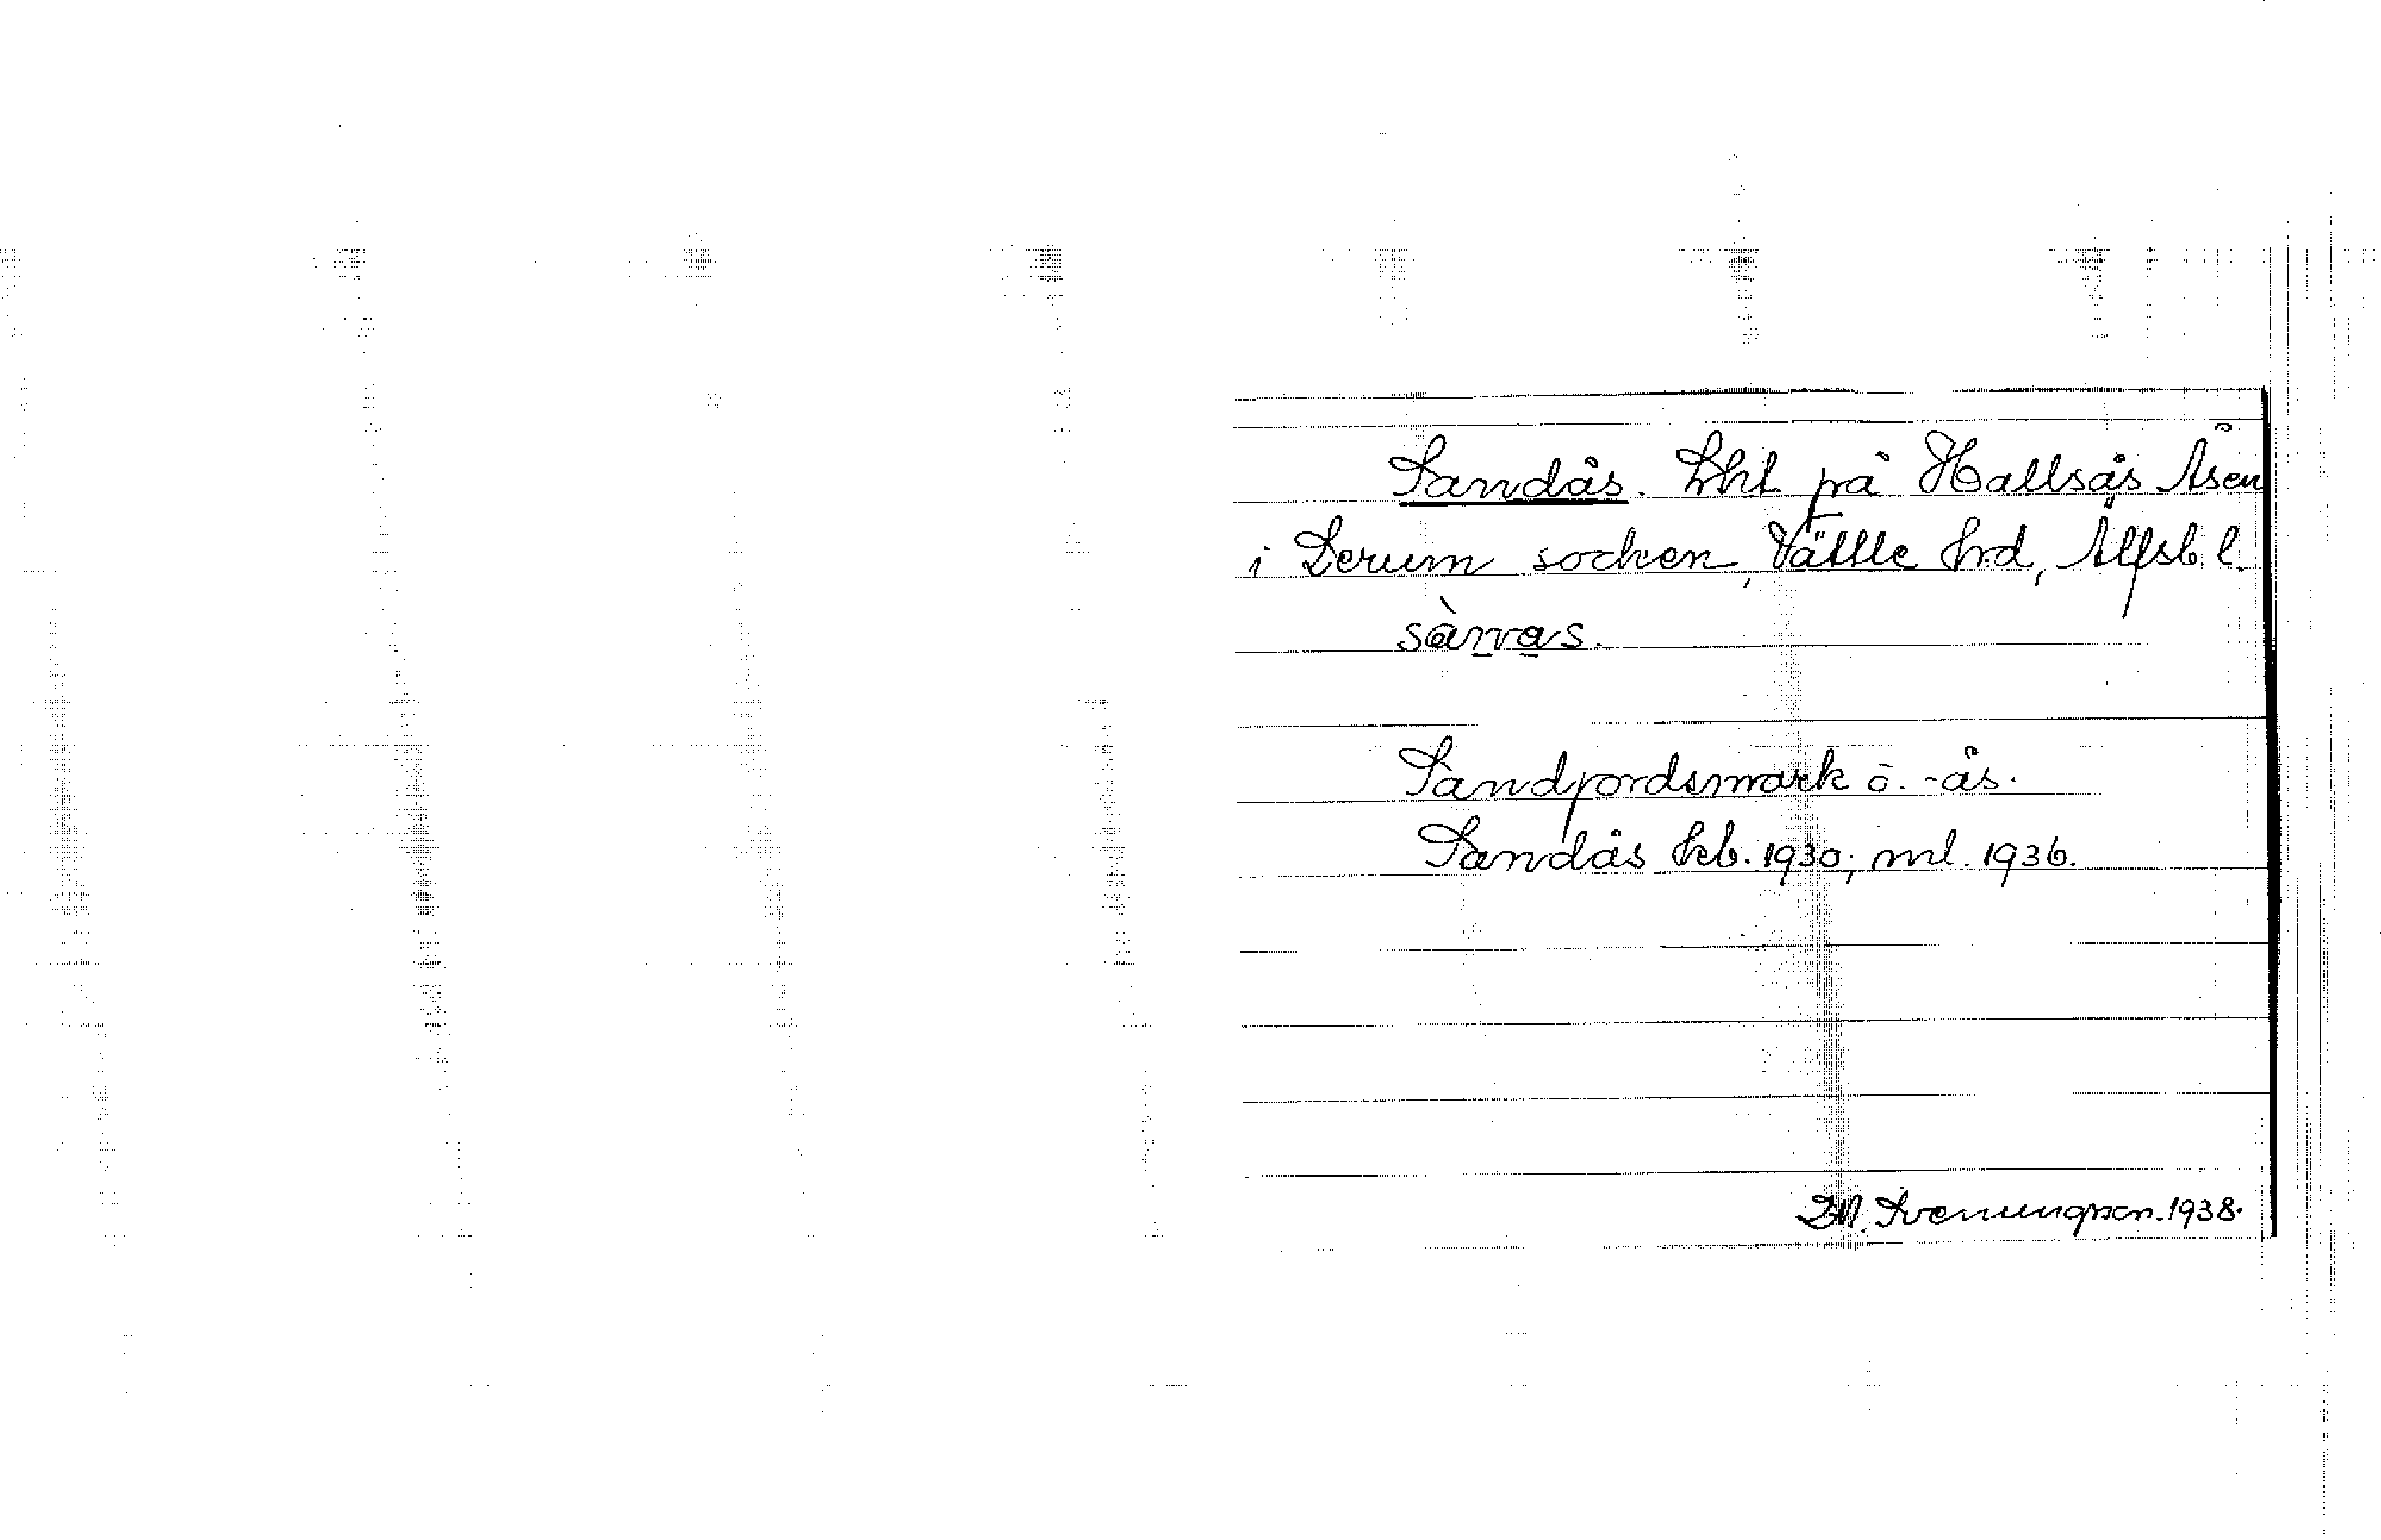 Sandås. Lht på Hallsås Åsen
i Lerum socken, Vättle hrd, Älfsb. l.
sànnas.
Sandjordsmark o. -ås.
Sandås kb. 1930; ml. 1936.
Svenungson. 1938.